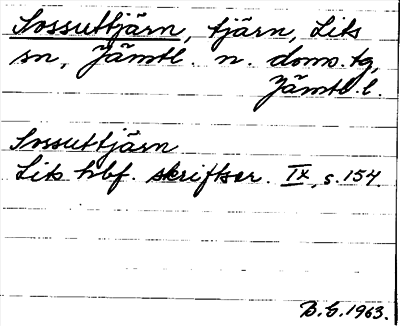 Sossuttjärn, tjärn, Lits
sn, Jämtl. n. doms.tg,
Jämtl. l.
Sossuttjärn
Lits hbf. skriftser. IX, s. 154.
B.E. 1963.